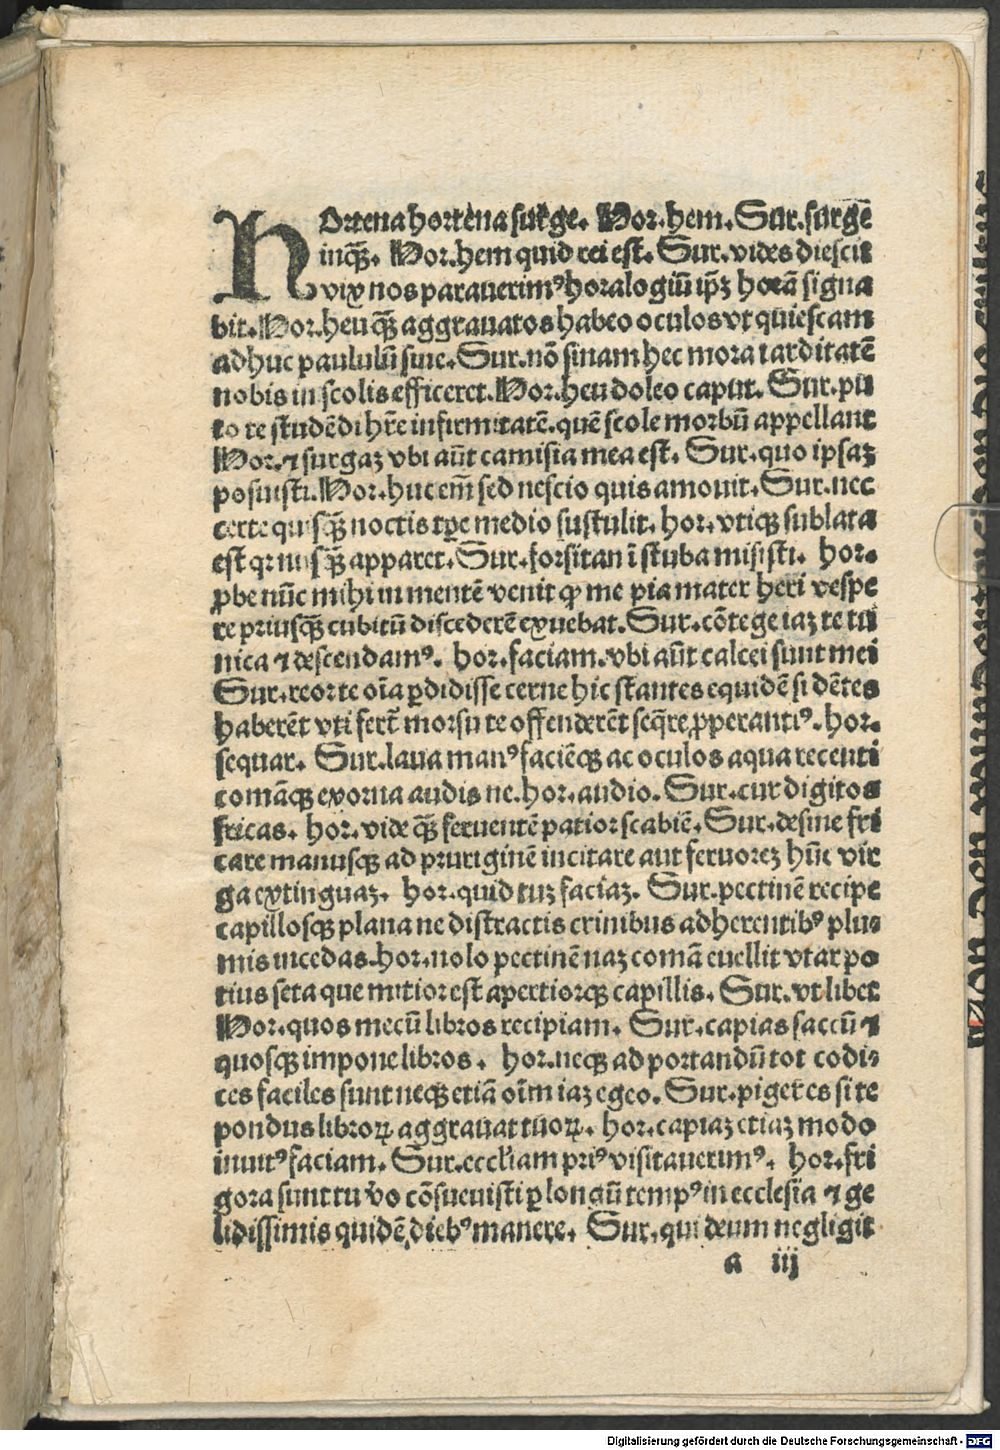 HOrtena hortena surge. Hor. hem. Sur. surgē
inqꝫ. Hor. hem quid rei est. Sur. vides diescit
vix nos parauerimꝰ horalogiū ipꝫ horā signa
bit. Hor. heu qꝫ aggrauatos habeo oculos vt quiescam
adhuc paululū sine. Sur. nō sinam hec mora tarditatē
nobis in scolis efficeret. Hor. heu doleo caput. Sur. pu
to te studēdi hr̄e infirmitatē. quē scole morbū appellant
Hor. ⁊ surgaꝫ vbi aūt camisia mea est. Sur. quo ipsaꝫ
posuisti. Hor. huc em̄ sed nescio quis amouit. Sur. nec
certe quisqꝫ noctis tꝑe medio sustulit. hor. vtiqꝫ sublata
est qꝛ nusqꝫ apparet. Sur. forsitan ī stuba misisti. hor.
ꝓbe nūc mihi in mentē venit ꝙ me pia mater heri vespe
re priusqꝫ cubitū discederē exuebat. Sur. cōtege iaꝫ te tu
nica ⁊ descendamꝰ. hor. faciam. vbi aūt calcei sunt mei
Sur. reor te oīa ꝑdidisse cerne hic stantes equidē si dētes
haberēt vti fert̄ morsu te offenderēt seqr̄e ꝓperantiꝰ. hor.
sequar. Sur. laua manꝰ faciēqꝫ ac oculos aqua recenti
comāqꝫ exorna audis ne. hor. audio. Sur. cur digitos
fricas. hor. vide qꝫ feruentē patior scabiē. Sur. desine fri
care manusqꝫ ad pruriginē incitare aut feruoreꝫ hūc vir
ga extinguaꝫ. hor. quid tuꝫ faciaꝫ. Sur. pectinē recipe
capillosqꝫ plana ne distractis crinibus adherentibꝰ plu⸗
mis incedas. hor. nolo pectinē naꝫ comā euellit vtar po
tius seta que mitior est apertiorqꝫ capillis. Sur. vt libet
Hor. quos mecū libros recipiam. Sur. capias saccū ⁊
quosqꝫ impone libros. hor. neqꝫ ad portandū tot codi⸗
ces faciles sunt neqꝫ etiā oīm iaꝫ egeo. Sur. piger es si te
pondus libroꝝ aggrauat tuoꝝ. hor. capiaꝫ etiaꝫ modo
inuitꝰ faciam. Sur. eccl̄iam priꝰ visitauerimꝰ. hor. fri
gora sunt tu v̄o cōsueuisti ꝑ longū tempꝰ in ecclesia ⁊ ge
lidissimis quidē diebꝰ manere. Sur. qui deum negligit
a iij
Digitalisierung gefördert durch die Deutsche Forschungsgemeinschaft - DFG